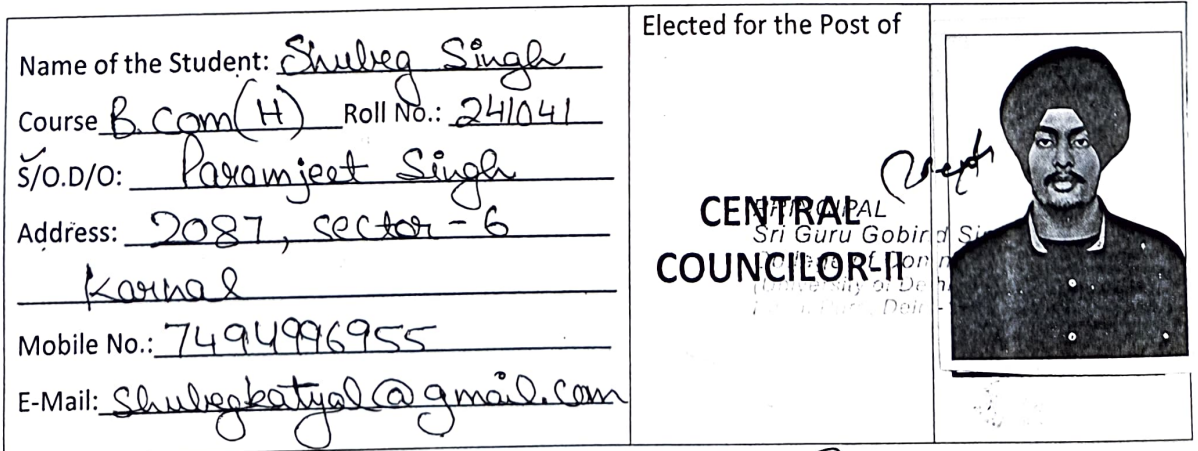 Name of the Student: Shubeg Singh
Course B.com(H) Roll No.: 241041
S/O.D/O: Paramjeet Singh
Address: 2087, sector-6
Karnal
Mobile No.: 7494996955
E-Mail: Shubegkatyal@gmail.com
Elected for the Post of
CENTRAL
COUNCILOR-II
PRINCIPAL
Sri Guru Gobind Si
College of Comm
(University of Delh
Delhi-